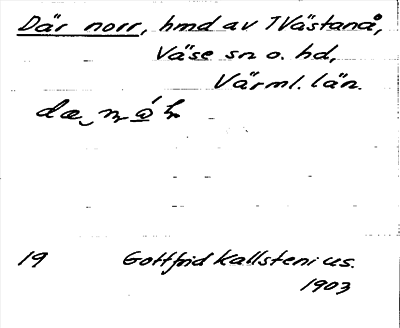 Där norr, hmd av 1 Västanå,
Väse sn o. hd,
Värml. län.
19 Gottfrid Kallstenius.
1903